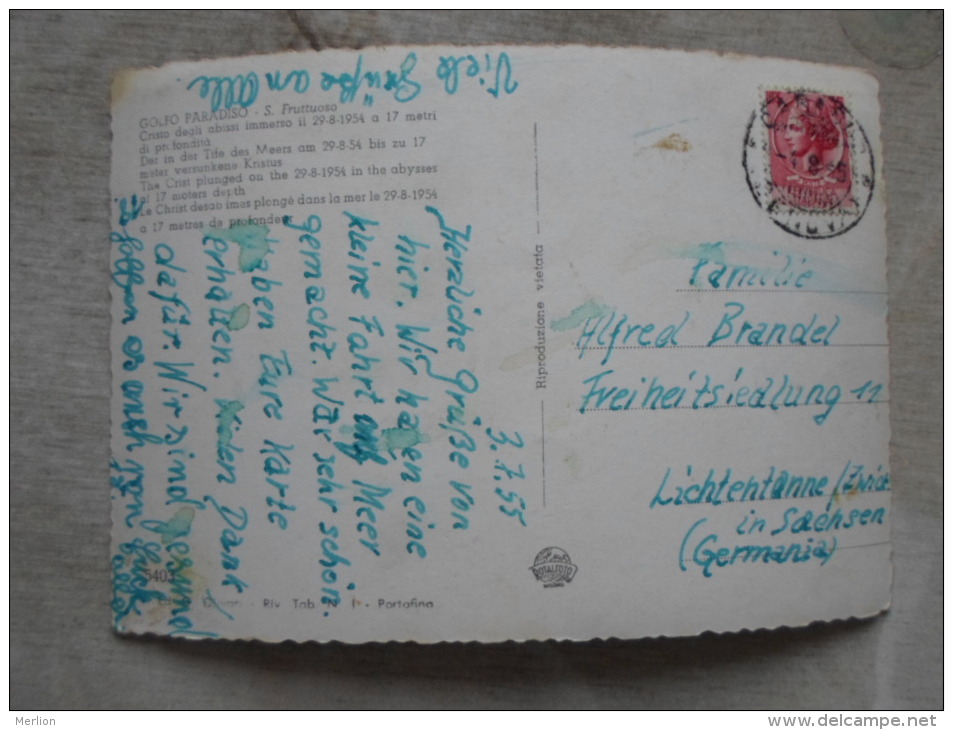 Viele Grüße an Alle
GOLFO PARADISO - S. Fruttuoso
Cristo degli abissi immerso il 29-8-1954 a 17 metri
di profondità
Der in der Tife des Meers am 29-8-54 bis zu 17
meter versunkene Kristus
The Crist plunged on the 29-8-1954 in the abysses
at 17 moters depth
Le Christ desab imes plongé dans la mer le 29-8-1954
a 17 metres de profondeur
3.7.55
Herzliche Grüße von
hier. Wir haben eine
kleine Fahrt aufs Meer
gemacht. War sehr schön.
Haben Eure Karte
erhalten. Vielen Dank
dafür. Wir sind gesund
hoffen es auch von Euch
allen
Riproduzione vietata
Familie
Alfred Brandel
Freiheitsiedlung 11
Lichtentanne/Zwick
in Sachsen
(Germania)
ROTALFOTO
MILANO
5403
Riv. Tab. - Portofino
Merlion
www.delcampe.net